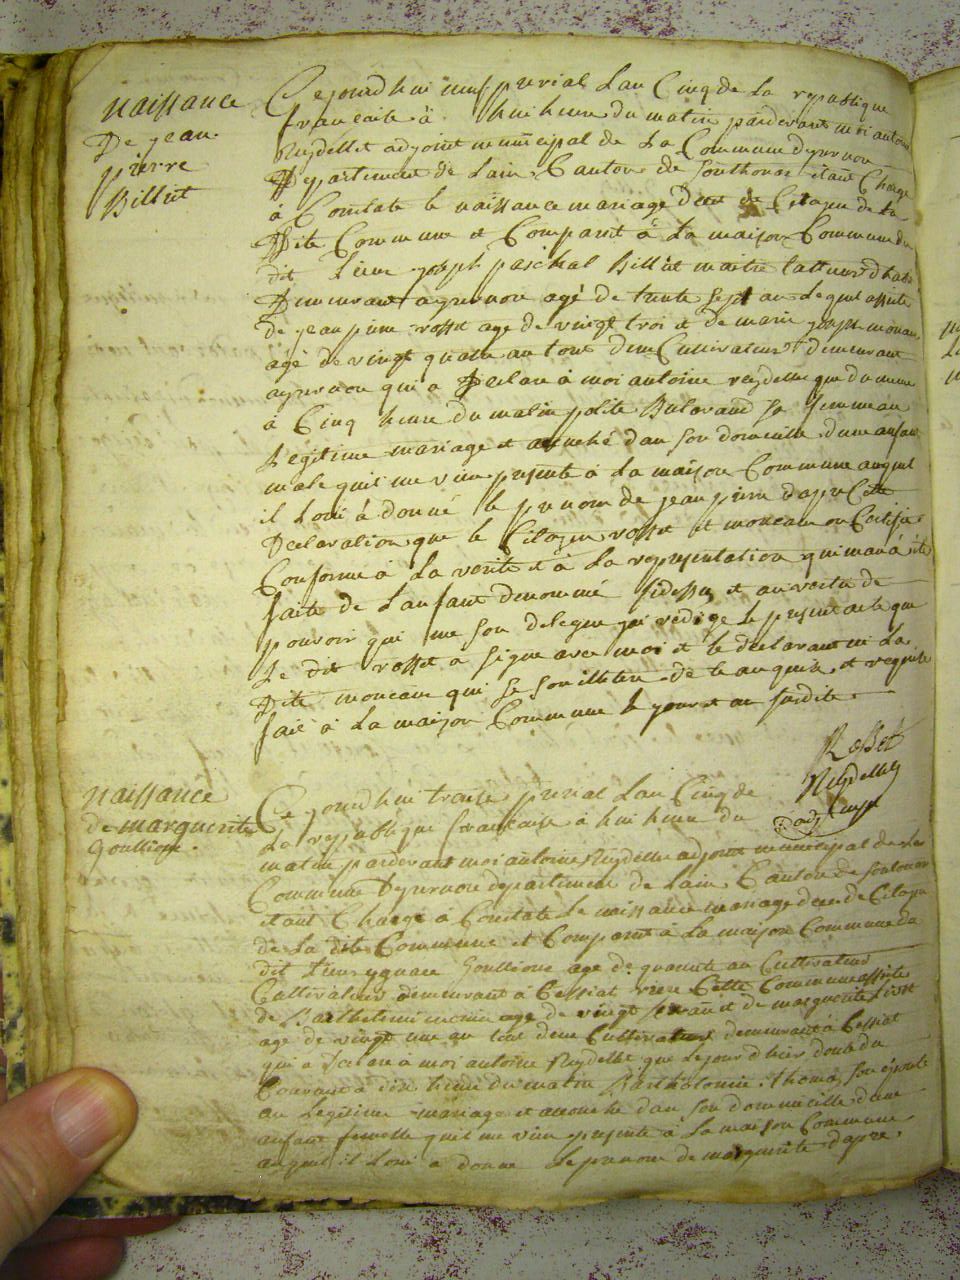 naissance
De jean
pierre
Billiet
Cejourd'hui neuf prerial Lan Cinq de La republique
francaise à huit heure du matin pardevant moi antoine
Reydellet adjoint municipal de La Commune dyzernore
Departement de Lain Canton de Sonthonas etant Charge
à Constate le naissance mariage deces de Citoyen de La
Dite Commune et Comparut à La maison Commune du
dit Lieu joseph paschal Billiet maitre tailleur d'habit
Demeurant ayzernore agé de trente sept an Lequel assiste
de jean pierre rosset age de vingt troi et de marie joseph moncau
agé de vingt quatre an tout deux Cultivateur demeurant
ayzernore qui a Declare à moi antoine reydellet que du meme
à Cinq heure du matin polite sa femme an
Legitime mariage et acouché dan son domicille dune anfant
male quil me vien presente à La maison Commune auquel
il Loui à donné le prenom de jean pierre dapre Cette
Declaration que le Citoyen rosset et moncau on Certifie
Conforme à La verité et à La representation qui ma à ete
faite de Lanfant denommé sidessu et an vertu de
pouvoir qui me son delegue jai redige Le present acte que
Le dit rosset a signe avec moi et le declarant ni La
Dite moncau qui se son illitere de ce anquis et requis
fait à La maison Commune le jour et an susdite
Rosset
Reydellet
adj
naissance
de marguerite
Goullion
Cejourd'hui treise prerial Lan Cinq de
La republique francaise à huit heure du
matin pardevant moi antoine Reydellet adjoint municipal de La
Commune Dyzernore departement de Lain Canton de Sontonas
etant Charge à Constate Le naissance mariage deces de Citoyen
de La dite Commune et Comparut à La maison Commune du
dit Lieu ygnace Goullion age de quarente an Cultivateur
Cultivateur demeurant à Cessiat riere Cette Commune assiste
de Barthelemi age de vingt an et de marguerite
age de vingt une an tout deux Cultivateur demeurant à Cessiat
qui a Declare à moi antoine Reydellet que Le jour d'hier douse du
Courant à dix heure du matin Bartholomie thoma son epouse
an Legitime mariage et acouche dan son dommicille dune
anfant femelle quil me vien presente à La maison Commune
auquel il Loui a donne Le prenom de marguerite dapre